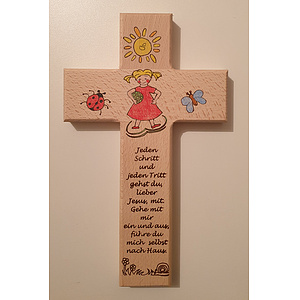 Jeden
Schritt
und
jeden Tritt
gehst du,
lieber
Jesus, mit.
Gehe mit
mir
ein und aus,
führe du
mich selbst
nach Haus.